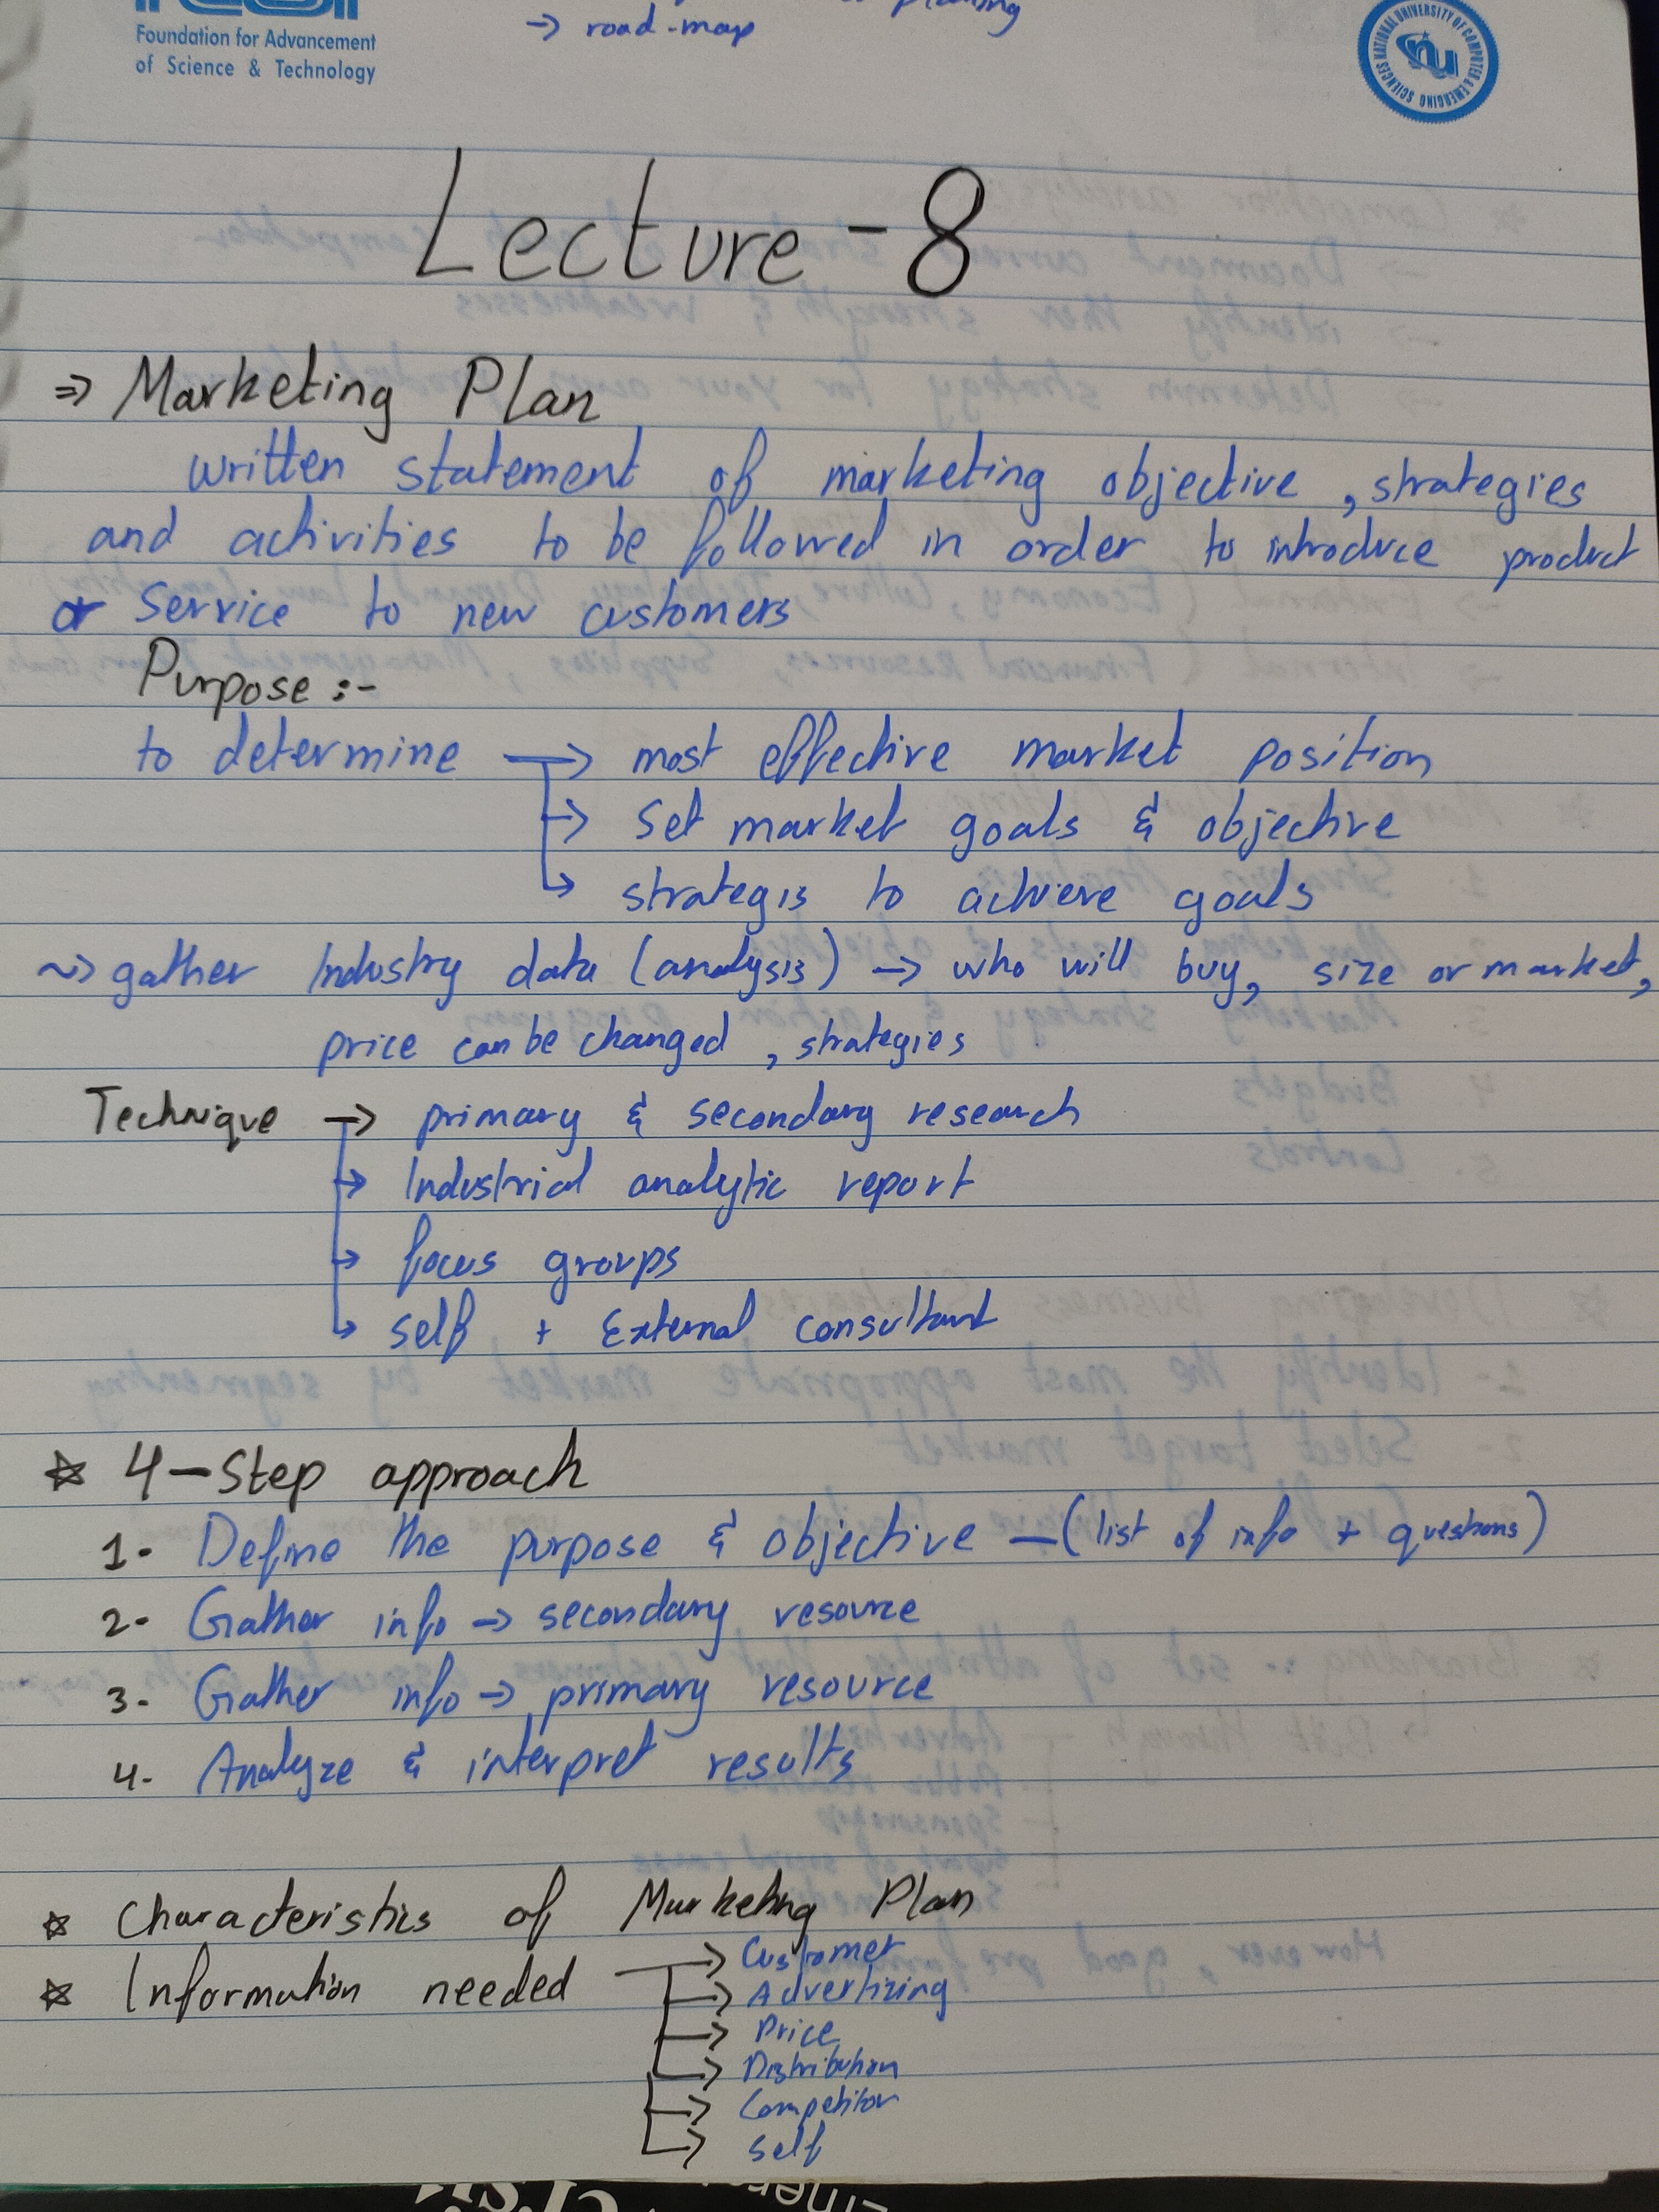 → road-map
Foundation for Advancement
of Science & Technology
NATIONAL UNIVERSITY OF COMPUTER & EMERGING SCIENCES
nu
Lecture-8
⇒ Marketing Plan
written statement of marketing objective, strategies
and activities to be followed in order to introduce product
or service to new customers
Purpose :-
to determine → most effective market position
→ Set market goals & objective
→ strategis to achieve goals
~> gather Industry data (analysis) → who will buy, size or market,
price can be changed, strategies
Technique → primary & secondary research
→ Industrial analytic report
→ focus groups
→ self + External consultant
☆ 4-Step approach
1- Define the purpose & objective - (list of info + questions)
2- Gather info → secondary resource
3- Gather info → primary resource
4- Analyze & interpret results
☆ Characteristics of Marketing Plan
☆ Information needed → Customer
→ Advertizing
→ Price
→ Distribution
→ Competitor
→ Self